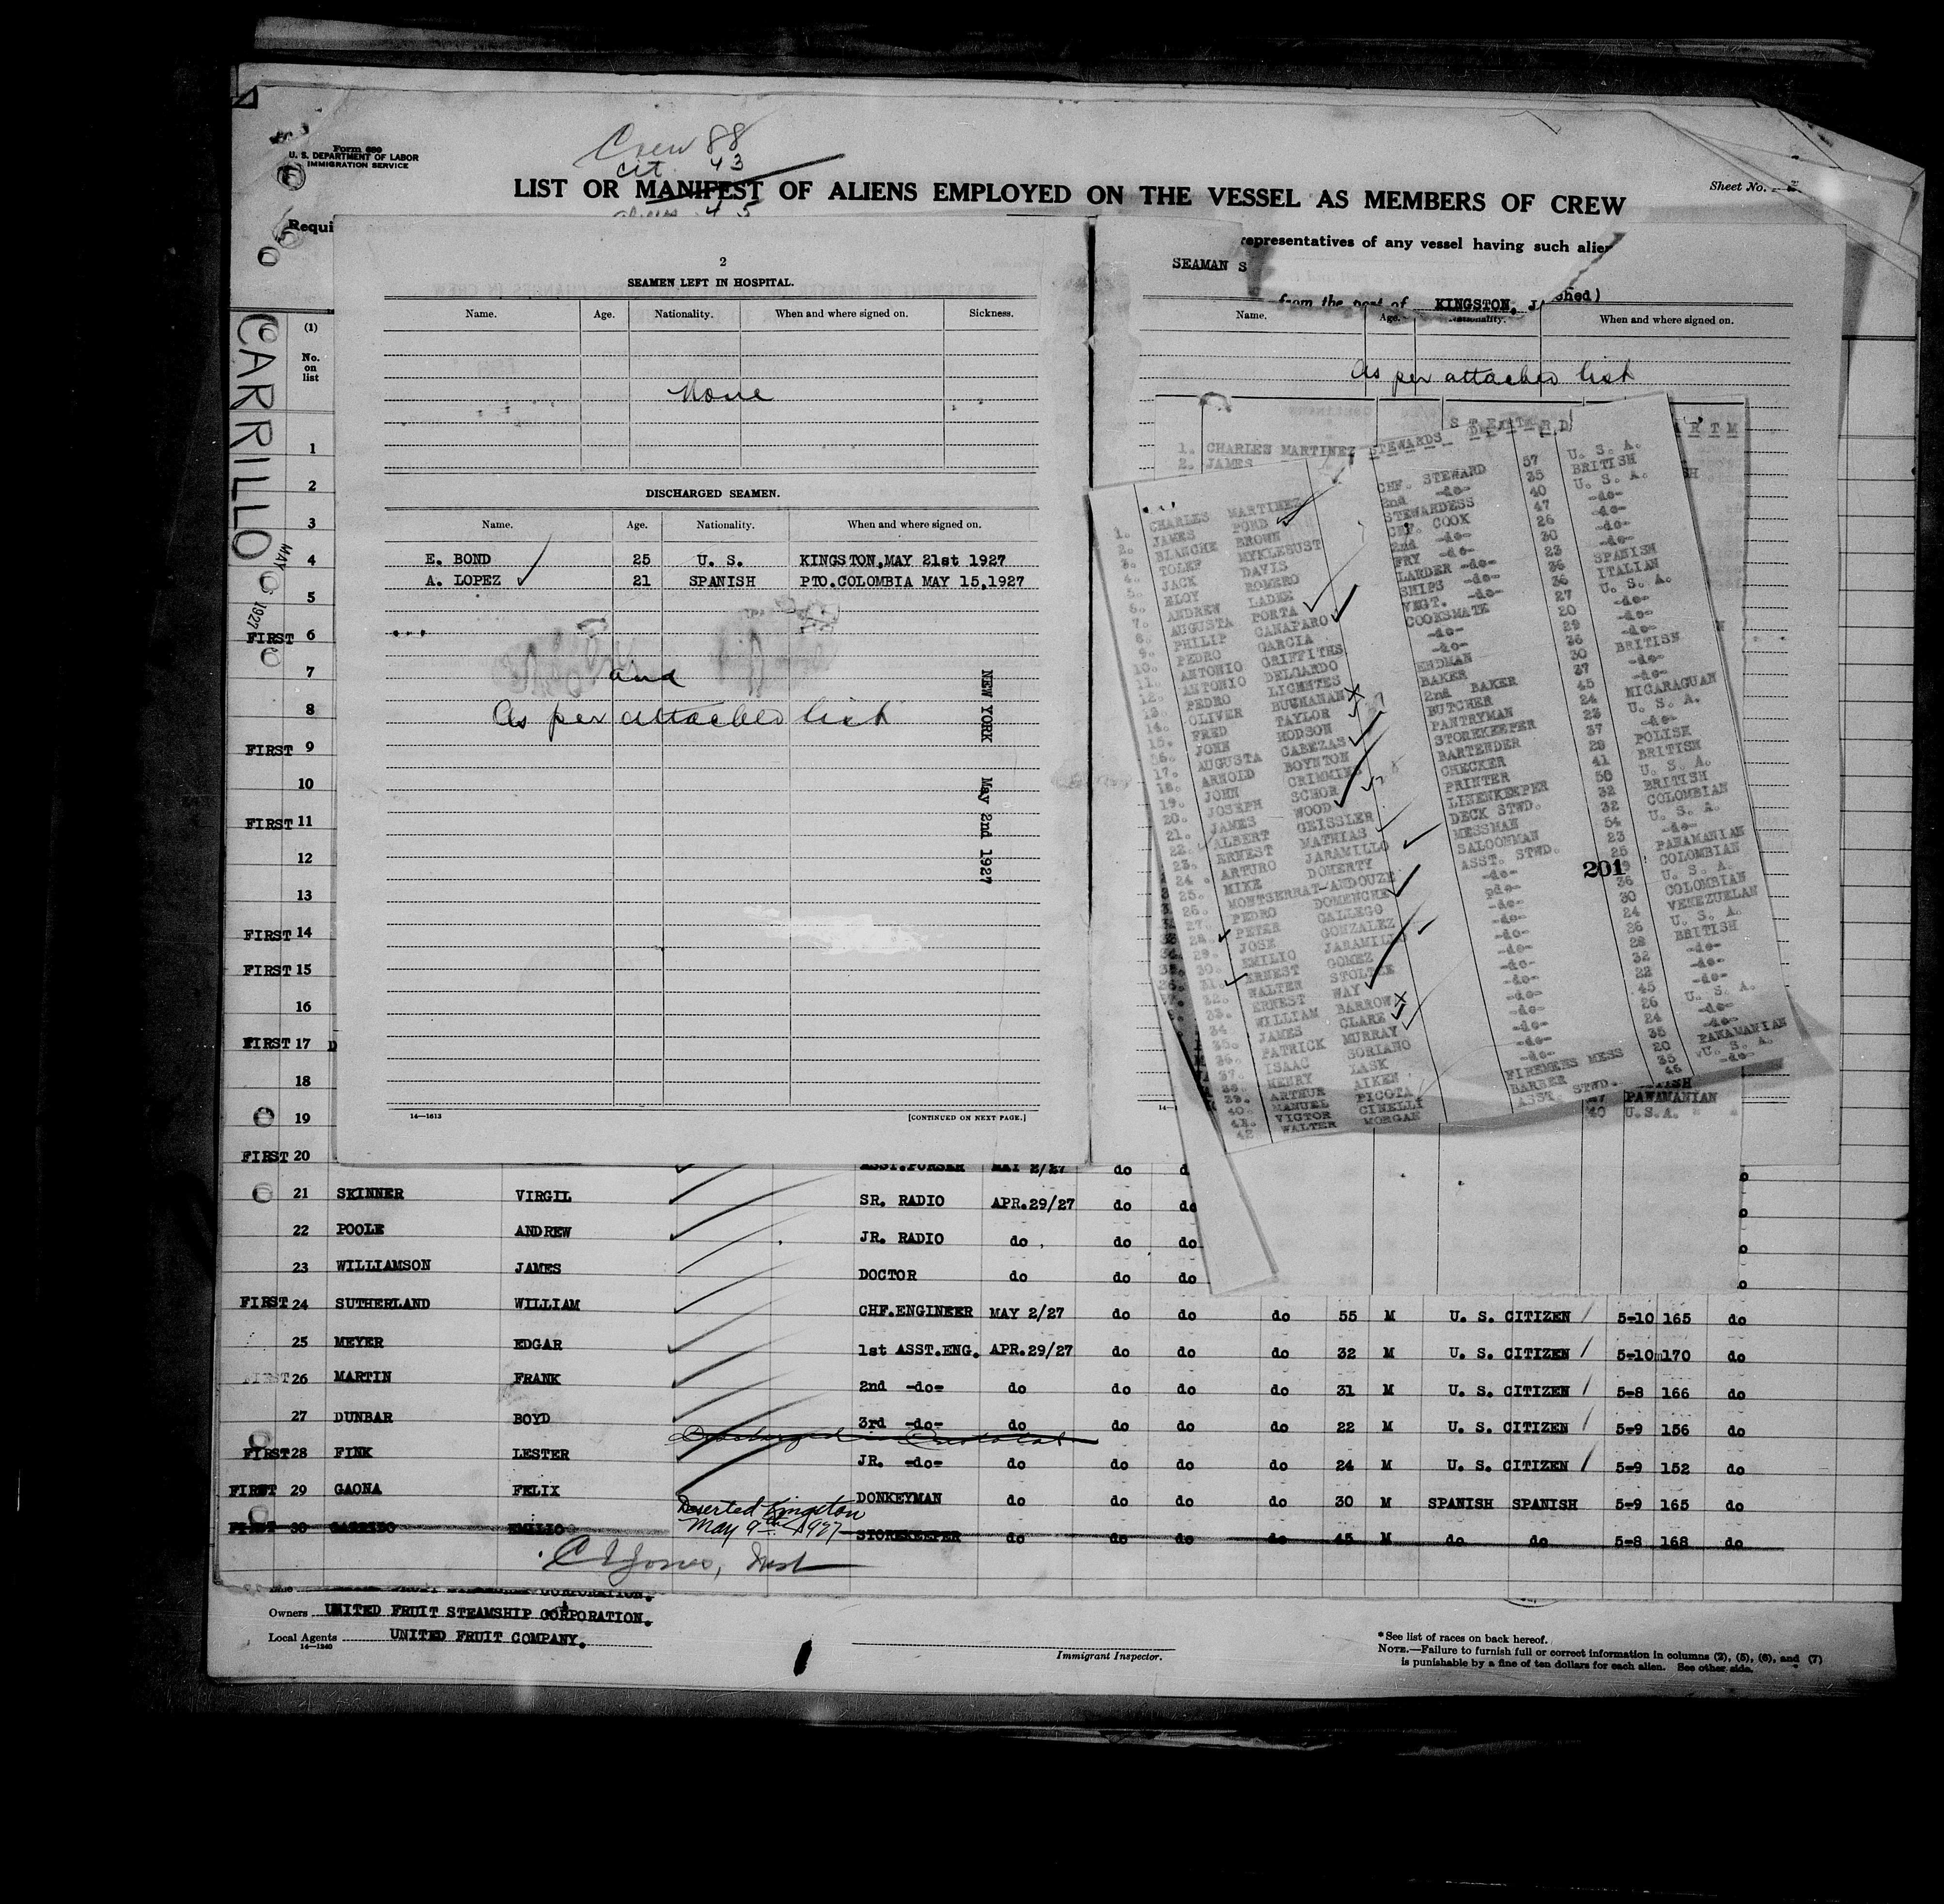 Crew 88
cit. 43
Form 689
U. S. DEPARTMENT OF LABOR
IMMIGRATION SERVICE
LIST OR MANIFEST OF ALIENS EMPLOYED ON THE VESSEL AS MEMBERS OF CREW
Sheet No.
aliens 45
Requi
representatives of any vessel having such alien
SEAMAN S
from the port of KINGSTON, JA
shed)
CARRILLO
MAY 1927
(1)
No. on list
2
SEAMEN LEFT IN HOSPITAL.
Name. Age. Nationality. When and where signed on. Sickness.
None
DISCHARGED SEAMEN.
Name. Age. Nationality. When and where signed on.
E. BOND 25 U. S. KINGSTON, MAY 21st 1927
A. LOPEZ 21 SPANISH PTO.COLOMBIA MAY 15,1927
and
As per attached list
NEW YORK May 2nd 1927
14—1613
[CONTINUED ON NEXT PAGE.]
Name. Age. Nationality. When and where signed on.
As per attached list
1. CHARLES MARTINEZ
2. JAMES
STEWARDS
1. CHARLES MARTINEZ CHF. STEWARD 57 U. S. A.
2. JAMES POND 2nd -do- 35 BRITISH
3. BLANCHE BROWN STEWARDESS 40 U. S. A.
4. TOLEF MYKLEBUST CHF. COOK 47 -do-
5. JACK DAVIS 2nd -do- 26 -do-
6. ELOY ROMERO FRY -do- 30 -do-
7. ANDREW LADEE LARDER -do- 23
8. AUGUSTA PORTA SHIPS -do- 36 SPANISH
9. PHILIP CANAPARO VEGT. -do- 36 ITALIAN
10. PEDRO GARCIA COOKSMATE 27 U. S. A.
11. ANTONIO GRIFFITHS -do- 20 -do-
12. ANTONIO DELGARDO -do- 29 -do-
13. PEDRO LIGHNTES ENDMAN 36
14. OLIVER BUCHANAN BAKER 30 BRITISH
15. FRED TAYLOR 2nd BAKER 37 -do-
16. JOHN HODSON BUTCHER 45
17. AUGUSTA CABEZAS PANTRYMAN 24 NICARAGUAN
18. ARNOLD BOYNTON STOREKEEPER 23 U. S. A.
19. JOHN CRIMMINS BARTENDER 37 -do-
20. JOSEPH SCHOR CHECKER 28 POLISH
21. JAMES WOOD PRINTER 41 BRITISH
22. ALBERT GEISSLER LINENKEEPER 58 U. S. A.
23. ERNEST MATHIAS DECK STWD. 32 BRITISH
24. ARTURO JARAMILLO MESSMAN 32 COLOMBIAN
25. MIKE DOHERTY SALOONMAN 54 U. S. A.
26. MONTSERRAT-ANDOUZE ASST. STWD. 23 -do-
27. PEDRO DOMENCHE -do- 25 PANAMANIAN
28. PETER GALLEGO COLOMBIAN
29. JOSE GONZALEZ -do- 36 U. S. A.
30. EMILIO JARAMILLO -do- 30 COLOMBIAN
31. ERNEST GOMEZ -do- 24 VENEZUELAN
32. WALTEN -do- 26 U. S. A.
33. ERNEST WAY -do- 28 BRITISH
34. WILLIAM BARROW -do- 32 -do-
35. JAMES CLARE -do- 22 -do-
36. PATRICK MURRAY -do- 45 -do-
37. ISAAC SORIANO -do- 26 U. S. A.
38. HENRY LASK -do- 24 -do-
39. ARTHUR AIKEN -do- 35 -do-
40. MANUEL PICOTA FIREMENS MESS 20 PANAMANIAN
41. VICTOR CINELLI BARBER 35 U. S. A.
42. WALTER MORGAN ASST. STWD. 46 -do-
201
PANAMANIAN
40 U.S.A.
1
2
3
4
5
FIRST 6
7
8
FIRST 9
10
FIRST 11
12
13
FIRST 14
FIRST 15
16
FIRST 17
18
19
FIRST 20 ASST.PURSER MAY 2/27 do
21 SKINNER VIRGIL SR. RADIO APR.29/27 do do
22 POOLE ANDREW JR. RADIO do do do
23 WILLIAMSON JAMES DOCTOR do do do
FIRST 24 SUTHERLAND WILLIAM CHF.ENGINEER MAY 2/27 do do do 55 M U. S. CITIZEN 5-10 165 do
25 MEYER EDGAR 1st ASST.ENG. APR.29/27 do do do 32 M U. S. CITIZEN 5-10 170 do
FIRST 26 MARTIN FRANK 2nd -do- do do do do 31 M U. S. CITIZEN 5-8 166 do
27 DUNBAR BOYD 3rd -do- do do do do 22 M U. S. CITIZEN 5-9 156 do
FIRST 28 FINK LESTER JR. -do- do do do do 24 M U. S. CITIZEN 5-9 152 do
FIRST 29 GAONA FELIX DONKEYMAN do do do do 30 M SPANISH SPANISH 5-9 165 do
Deserted Kingston
May 9th 1927
FIRST 30 EMILIO STOREKEEPER do do do do 45 M do do 5-8 168 do
Owners UNITED FRUIT STEAMSHIP CORPORATION.
Local Agents UNITED FRUIT COMPANY.
14—1240
Immigrant Inspector.
*See list of races on back hereof.
NOTE.—Failure to furnish full or correct information in columns (2), (5), (6), and (7)
is punishable by a fine of ten dollars for each alien. See other side.